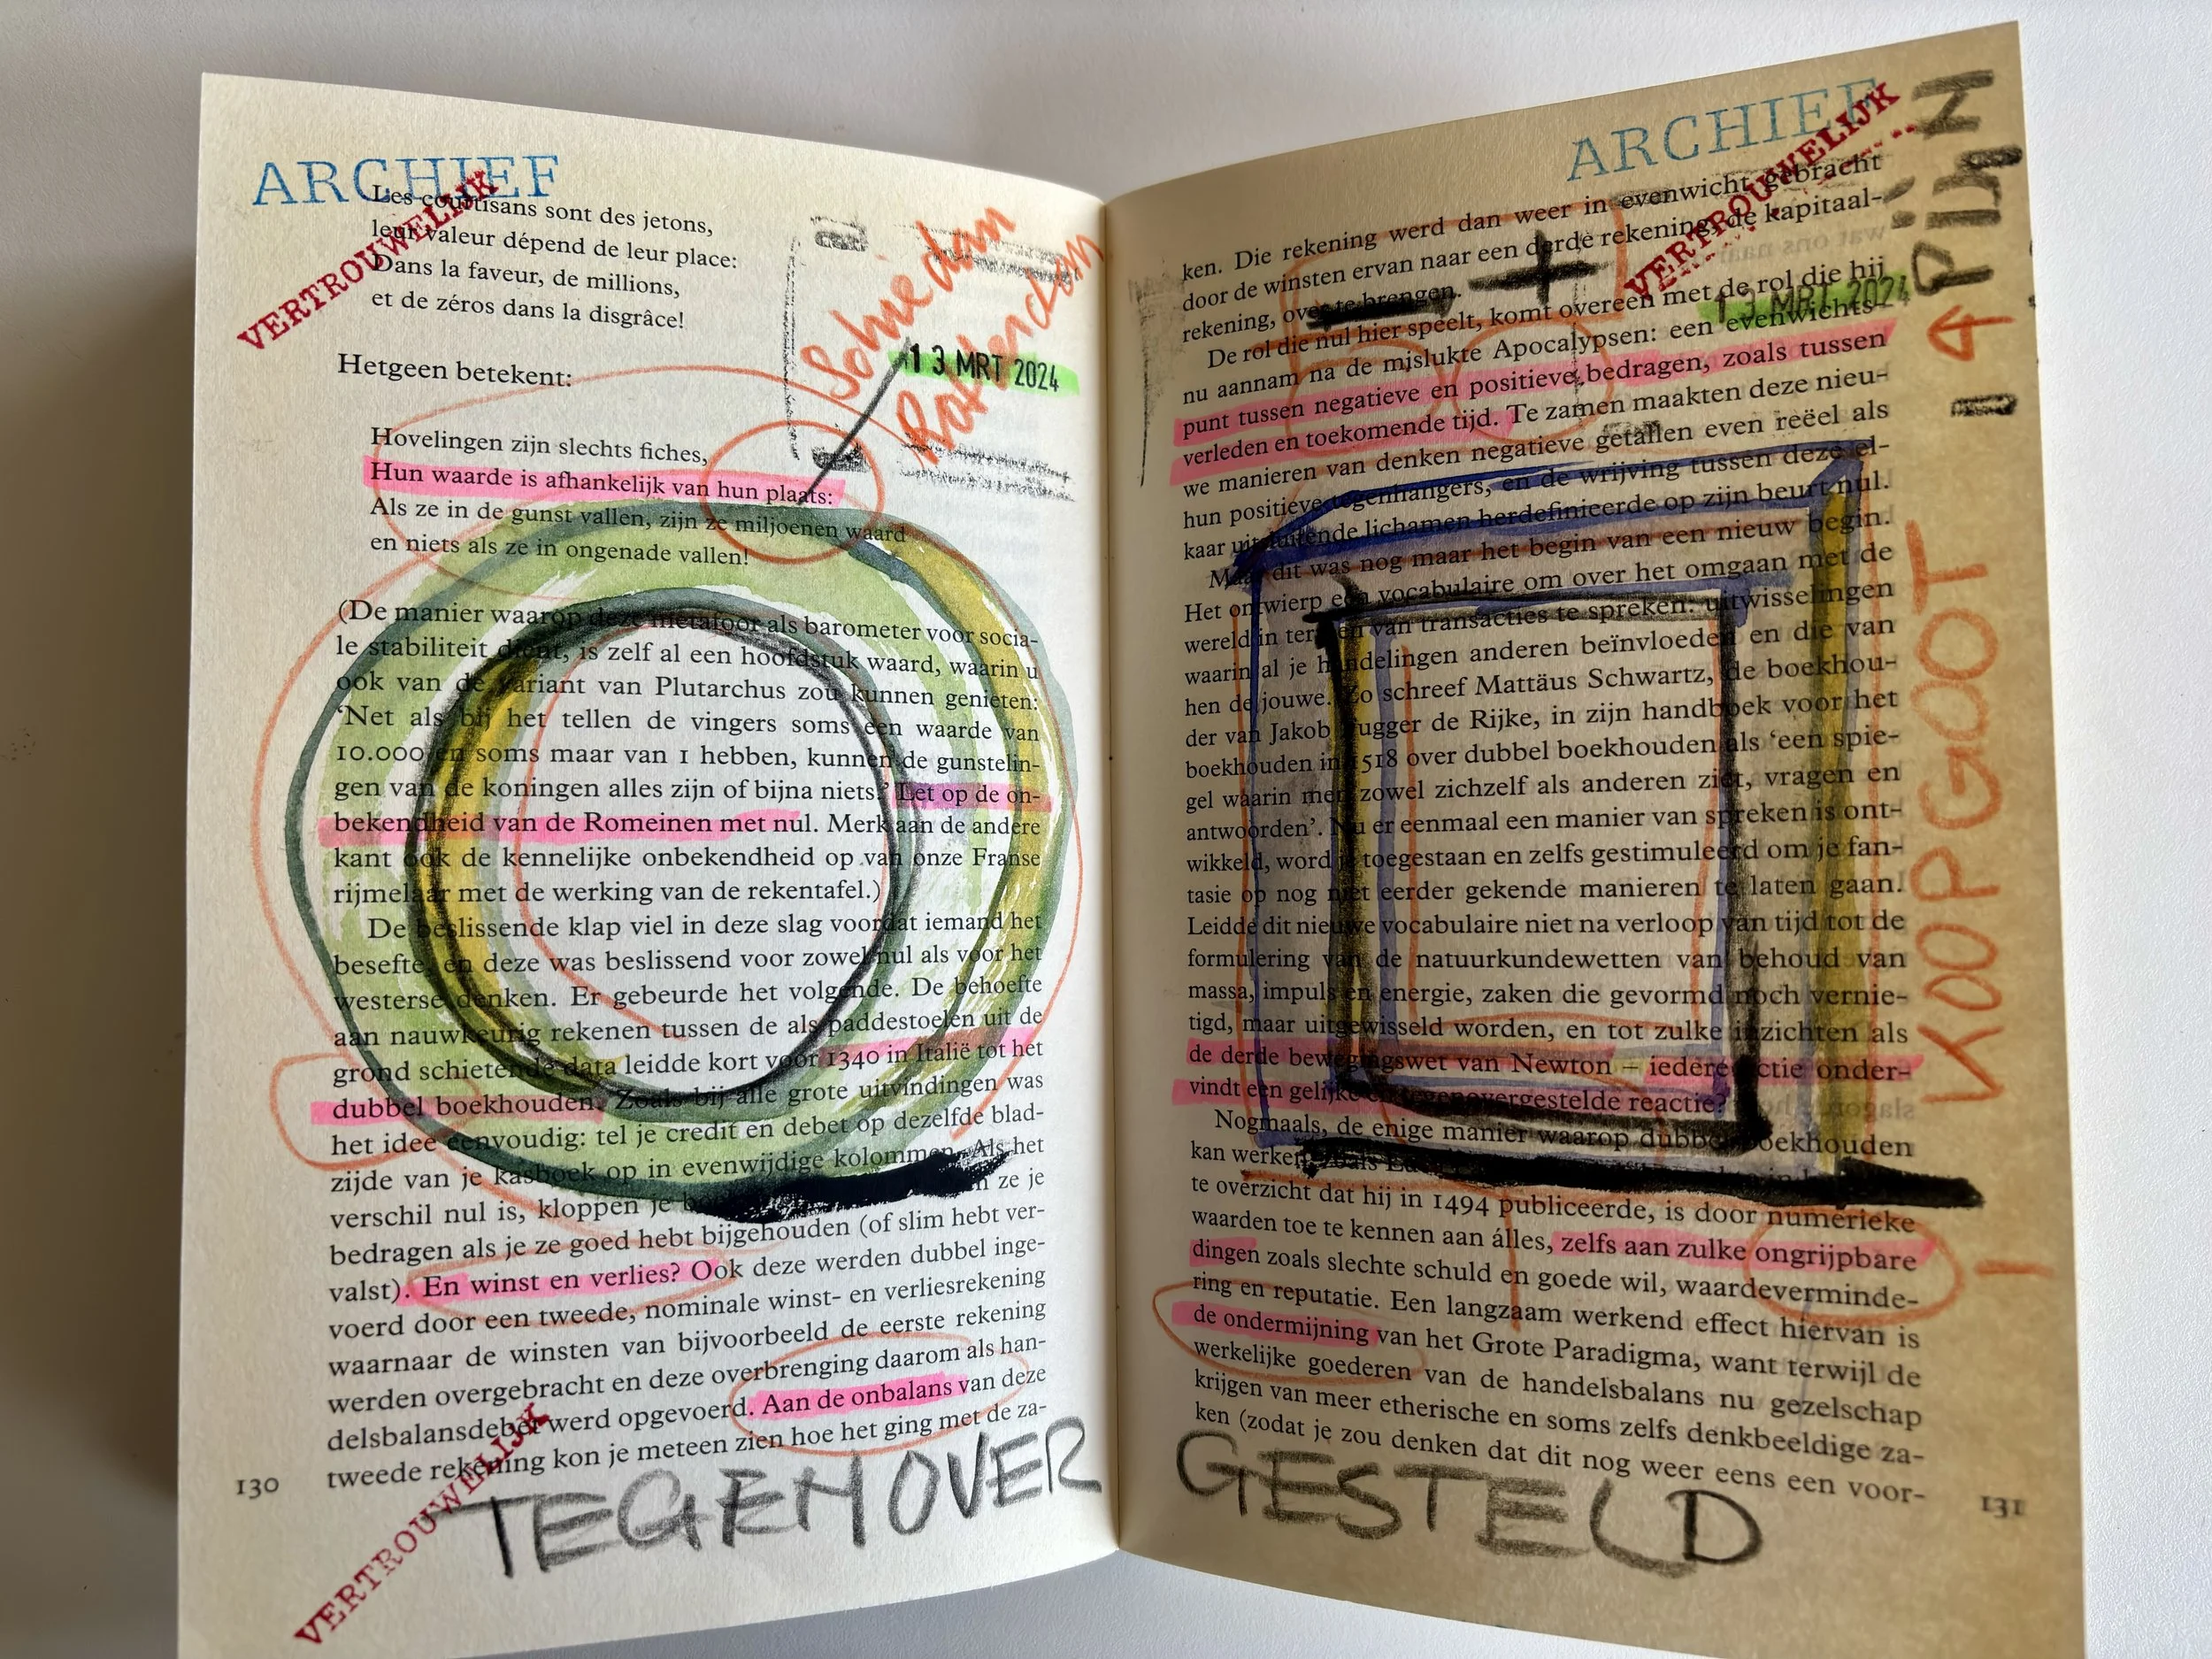 ARCHIEF
VERTROUWELIJK
Les courtisans sont des jetons,
leur valeur dépend de leur place:
Dans la faveur, de millions,
et de zéros dans la disgrâce!
Schiedam
Rotterdam
13 MRT 2024
Hetgeen betekent:
Hovelingen zijn slechts fiches,
Hun waarde is afhankelijk van hun plaats:
Als ze in de gunst vallen, zijn ze miljoenen waard
en niets als ze in ongenade vallen!
(De manier waarop deze metafoor als barometer voor socia-
le stabiliteit dient, is zelf al een hoofdstuk waard, waarin u
ook van de variant van Plutarchus zou kunnen genieten:
‘Net als bij het tellen de vingers soms een waarde van
10.000 en soms maar van 1 hebben, kunnen de gunstelin-
gen van de koningen alles zijn of bijna niets.’ Let op de on-
bekendheid van de Romeinen met nul. Merk aan de andere
kant ook de kennelijke onbekendheid op van onze Franse
rijmelaar met de werking van de rekentafel.)
De beslissende klap viel in deze slag voordat iemand het
besefte, en deze was beslissend voor zowel nul als voor het
westerse denken. Er gebeurde het volgende. De behoefte
aan nauwkeurig rekenen tussen de als paddestoelen uit de
grond schietende data leidde kort voor 1340 in Italië tot het
dubbel boekhouden. Zoals bij alle grote uitvindingen was
het idee eenvoudig: tel je credit en debet op dezelfde blad-
zijde van je kasboek op in evenwijdige kolommen. Als het
verschil nul is, kloppen je ze je
bedragen als je ze goed hebt bijgehouden (of slim hebt ver-
valst). En winst en verlies? Ook deze werden dubbel inge-
voerd door een tweede, nominale winst- en verliesrekening
waarnaar de winsten van bijvoorbeeld de eerste rekening
werden overgebracht en deze overbrenging daarom als han-
delsbalansdebet werd opgevoerd. Aan de onbalans van deze
tweede rekening kon je meteen zien hoe het ging met de za-
130
VERTROUWELIJK
TEGENOVER
ARCHIEF
VERTROUWELIJK
ken. Die rekening werd dan weer in evenwicht gebracht
door de winsten ervan naar een derde rekening, de kapitaal-
rekening, over te brengen.
- +
13 MRT 2024
De rol die nul hier speelt, komt overeen met de rol die hij
nu aannam na de mislukte Apocalypsen: een evenwichts-
punt tussen negatieve en positieve bedragen, zoals tussen
verleden en toekomende tijd. Te zamen maakten deze nieu-
we manieren van denken negatieve getallen even reëel als
hun positieve tegenhangers, en de wrijving tussen deze el-
kaar uitsluitende lichamen herdefinieerde op zijn beurt nul.
Maar dit was nog maar het begin van een nieuw begin.
Het ontwierp een vocabulaire om over het omgaan met de
wereld in termen van transacties te spreken: uitwisselingen
waarin al je handelingen anderen beïnvloeden en die van
hen de jouwe. Zo schreef Mattäus Schwartz, de boekhou-
der van Jakob Fugger de Rijke, in zijn handboek voor het
boekhouden in 1518 over dubbel boekhouden als ‘een spie-
gel waarin men zowel zichzelf als anderen ziet, vragen en
antwoorden’. Nu er eenmaal een manier van spreken is ont-
wikkeld, word je toegestaan en zelfs gestimuleerd om je fan-
tasie op nog niet eerder gekende manieren te laten gaan.
Leidde dit nieuwe vocabulaire niet na verloop van tijd tot de
formulering van de natuurkundewetten van behoud van
massa, impuls en energie, zaken die gevormd noch vernie-
tigd, maar uitgewisseld worden, en tot zulke inzichten als
de derde bewegingswet van Newton – iedere actie onder-
vindt een gelijke en tegenovergestelde reactie?
Nogmaals, de enige manier waarop dubbel boekhouden
kan werken, zoals
te overzicht dat hij in 1494 publiceerde, is door numerieke
waarden toe te kennen aan álles, zelfs aan zulke ongrijpbare
dingen zoals slechte schuld en goede wil, waardeverminde-
ring en reputatie. Een langzaam werkend effect hiervan is
de ondermijning van het Grote Paradigma, want terwijl de
werkelijke goederen van de handelsbalans nu gezelschap
krijgen van meer etherische en soms zelfs denkbeeldige za-
ken (zodat je zou denken dat dit nog weer eens een voor-
131
GESTELD
KOOPGOOT